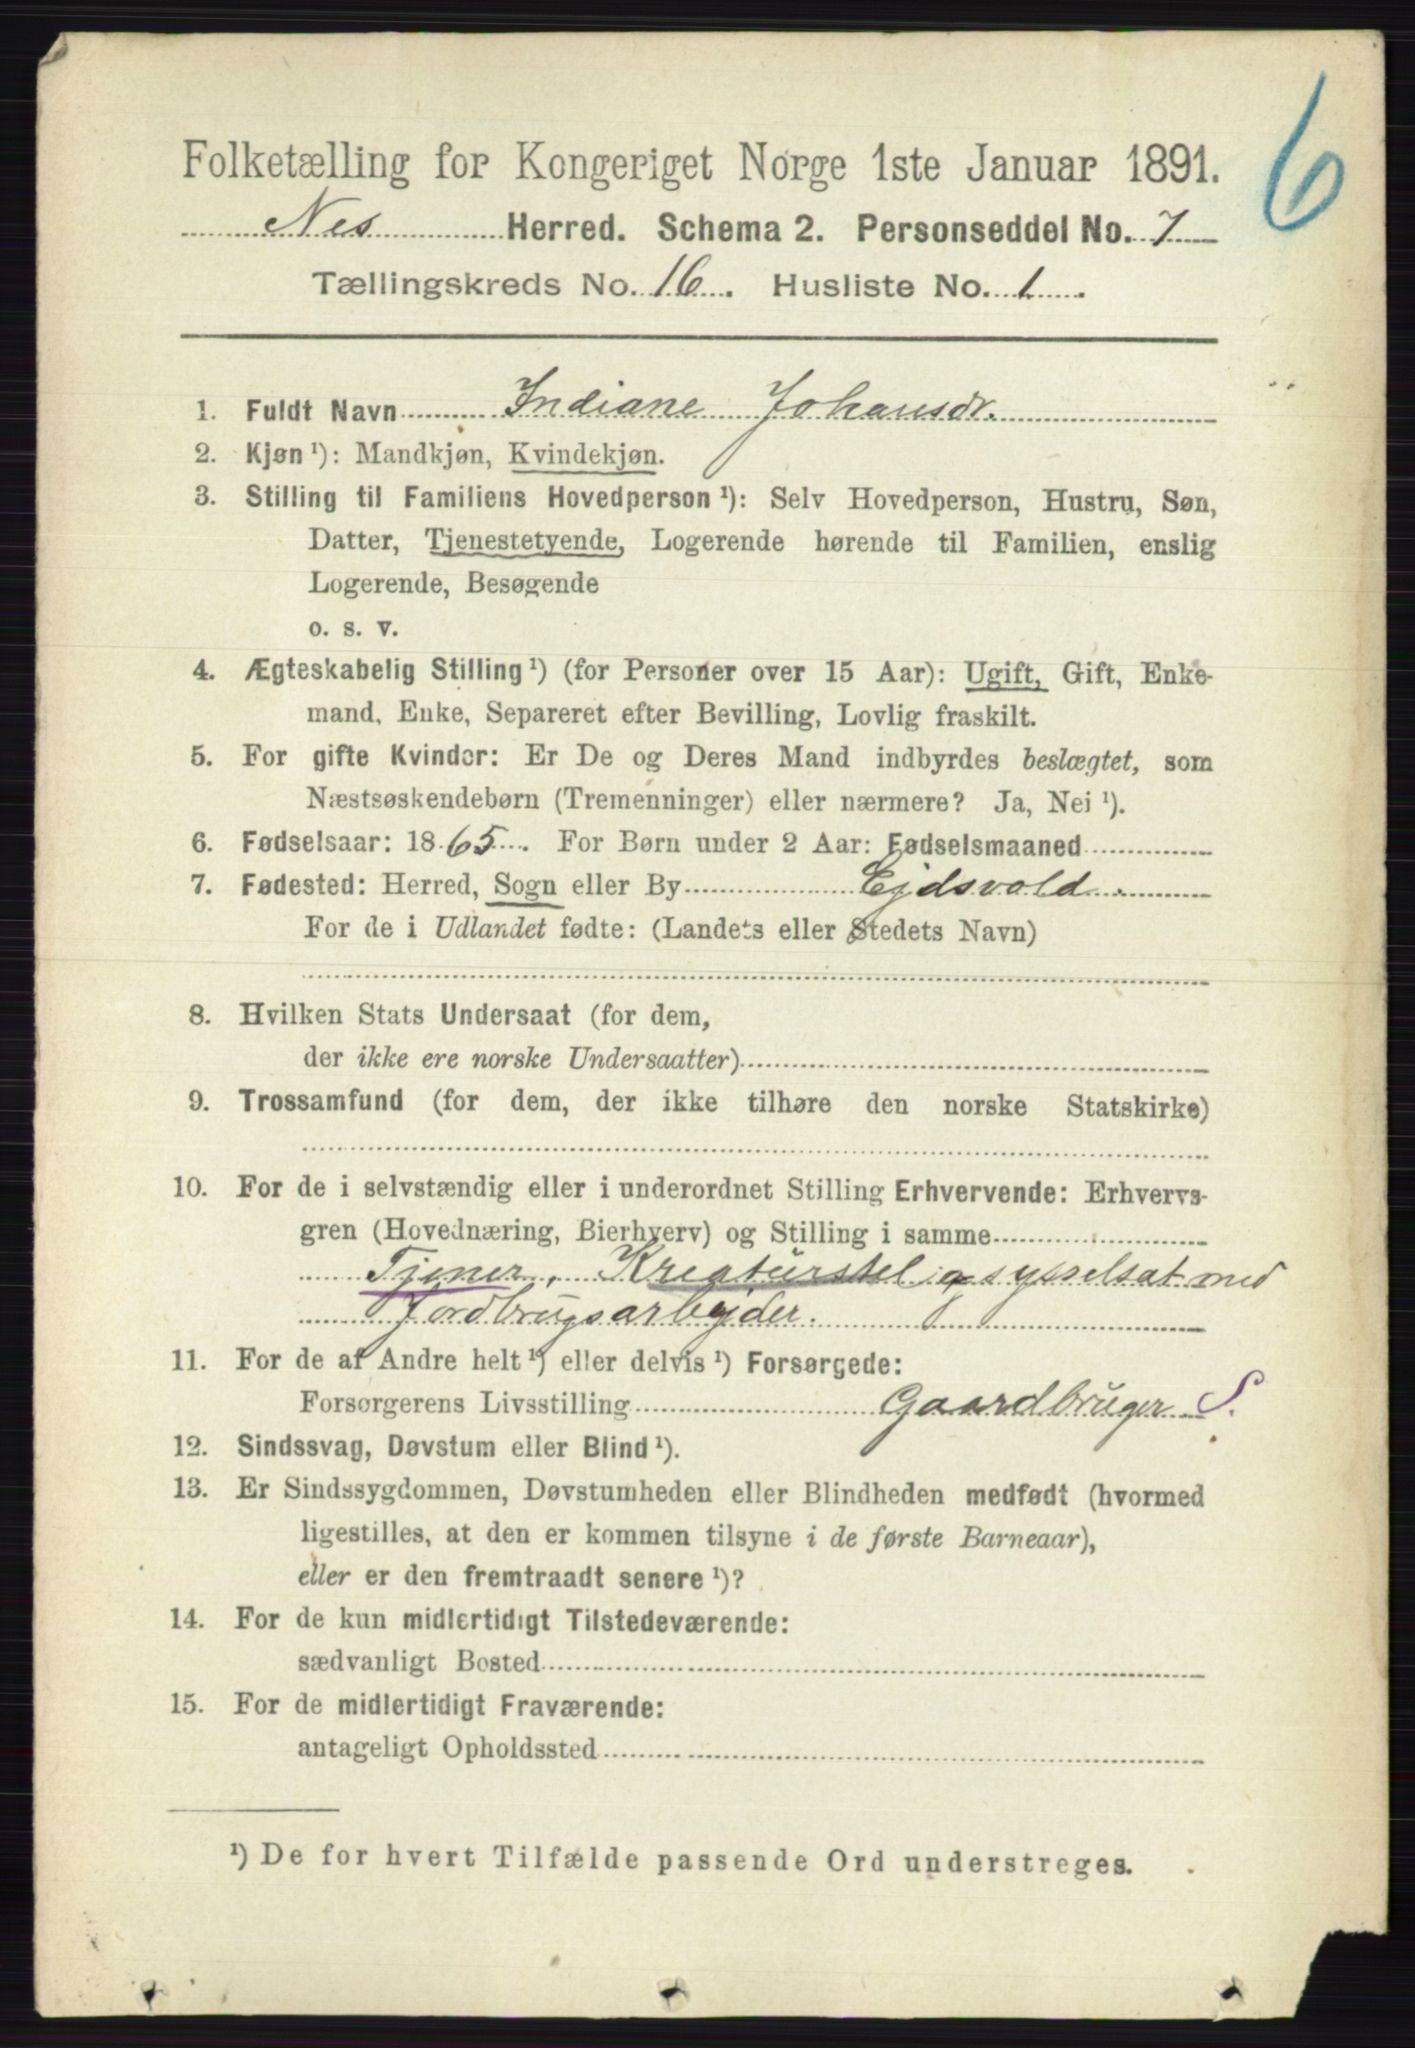 6
Folketælling for Kongeriget Norge 1ste Januar 1891.
Nes Herred. Schema 2. Personseddel No. 7
Tællingskreds No. 16. Husliste No. 1.
1. Fuldt Navn Indiane Johansdr.
2. Kjøn ¹): Mandkjøn, Kvindekjøn.
3. Stilling til Familiens Hovedperson ¹): Selv Hovedperson, Hustru, Søn,
Datter, Tjenestetyende, Logerende hørende til Familien, enslig
Logerende, Besøgende
o. s. v.
4. Ægteskabelig Stilling ¹) (for Personer over 15 Aar): Ugift, Gift, Enke-
mand, Enke, Separeret efter Bevilling, Lovlig fraskilt.
5. For gifte Kvinder: Er De og Deres Mand indbyrdes beslægtet, som
Næstsøskendebørn (Tremenninger) eller nærmere? Ja, Nei ¹).
6. Fødselsaar: 1865. For Børn under 2 Aar: Fødselsmaaned
7. Fødested: Herred, Sogn eller By Ejdsvold.
For de i Udlandet fødte: (Landets eller Stedets Navn)
8. Hvilken Stats Undersaat (for dem,
der ikke ere norske Undersaatter)
9. Trossamfund (for dem, der ikke tilhøre den norske Statskirke)
10. For de i selvstændig eller i underordnet Stilling Erhvervende: Erhvervs-
gren (Hovednæring, Bierhverv) og Stilling i samme
Tjener, Kreaturstel og sysselsat med
Jordbrugsarbejder.
11. For de af Andre helt ¹) eller delvis ¹) Forsørgede:
Forsørgerens Livsstilling Gaardbruger S.
12. Sindssvag, Døvstum eller Blind ¹).
13. Er Sindssygdommen, Døvstumheden eller Blindheden medfødt (hvormed
ligestilles, at den er kommen tilsyne i de første Barneaar),
eller er den fremtraadt senere ¹)?
14. For de kun midlertidigt Tilstedeværende:
sædvanligt Bosted
15. For de midlertidigt Fraværende:
antageligt Opholdssted
¹) De for hvert Tilfælde passende Ord understreges.